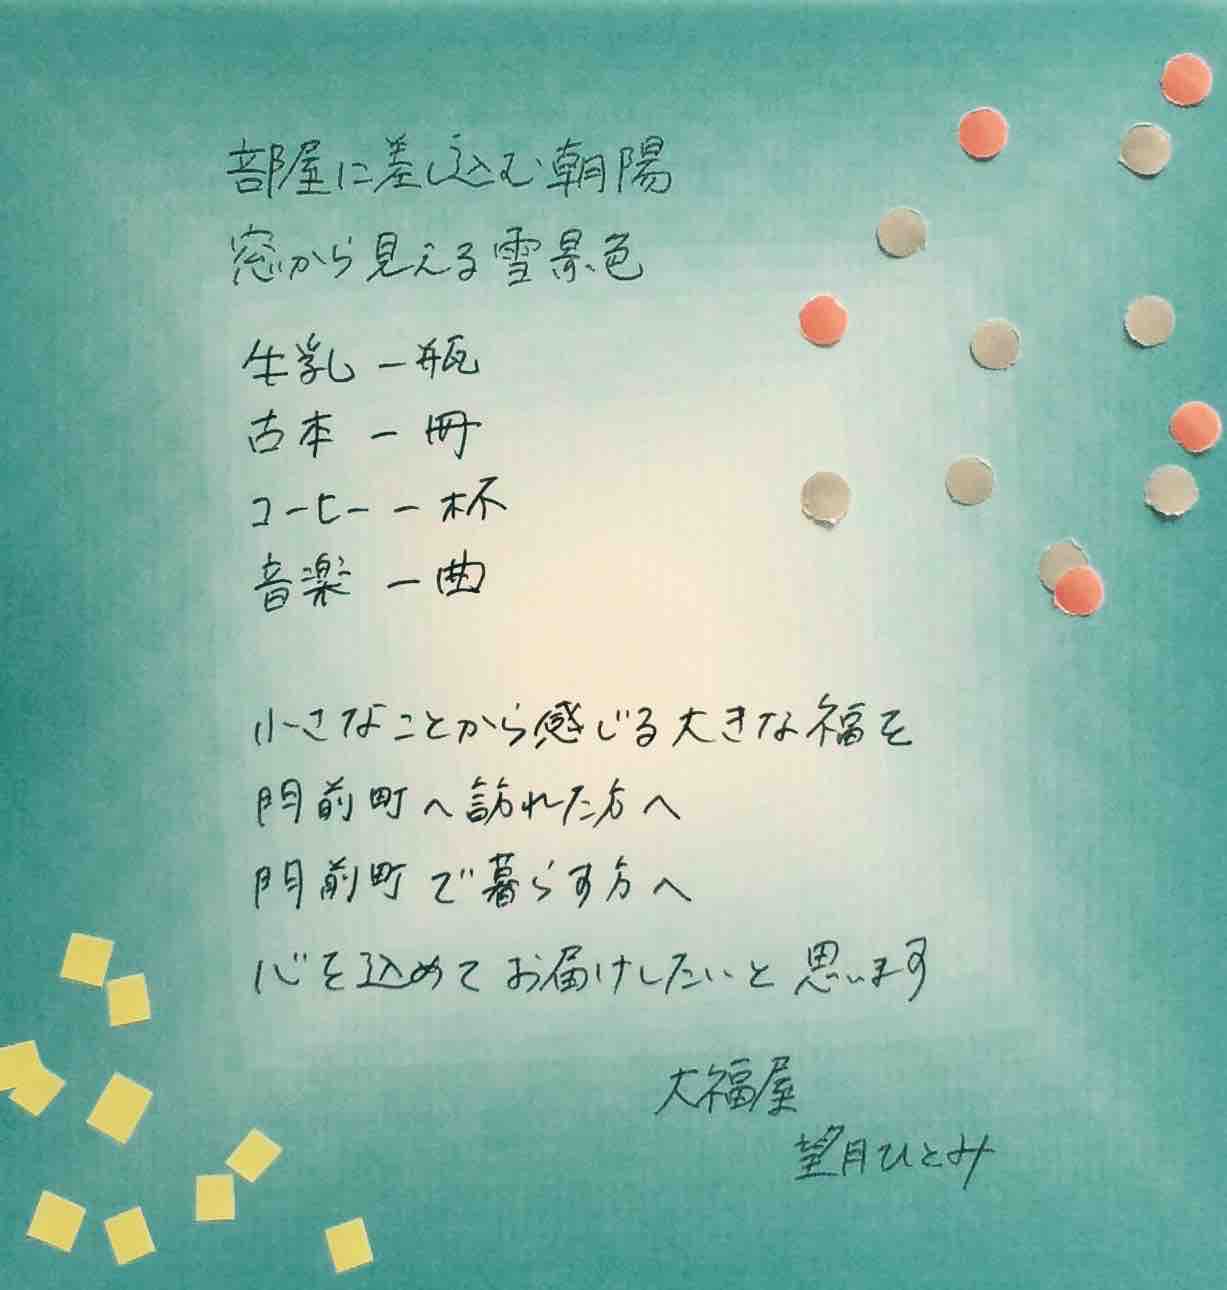 部屋に差し込む朝陽
窓から見える雪景色
牛乳 一瓶
古本 一冊
コーヒー 一杯
音楽 一曲
小さなことから感じる大きな福を
門前町へ訪れた方へ
門前町で暮らす方へ
心を込めてお届けしたいと思います
大福屋
望月ひとみ